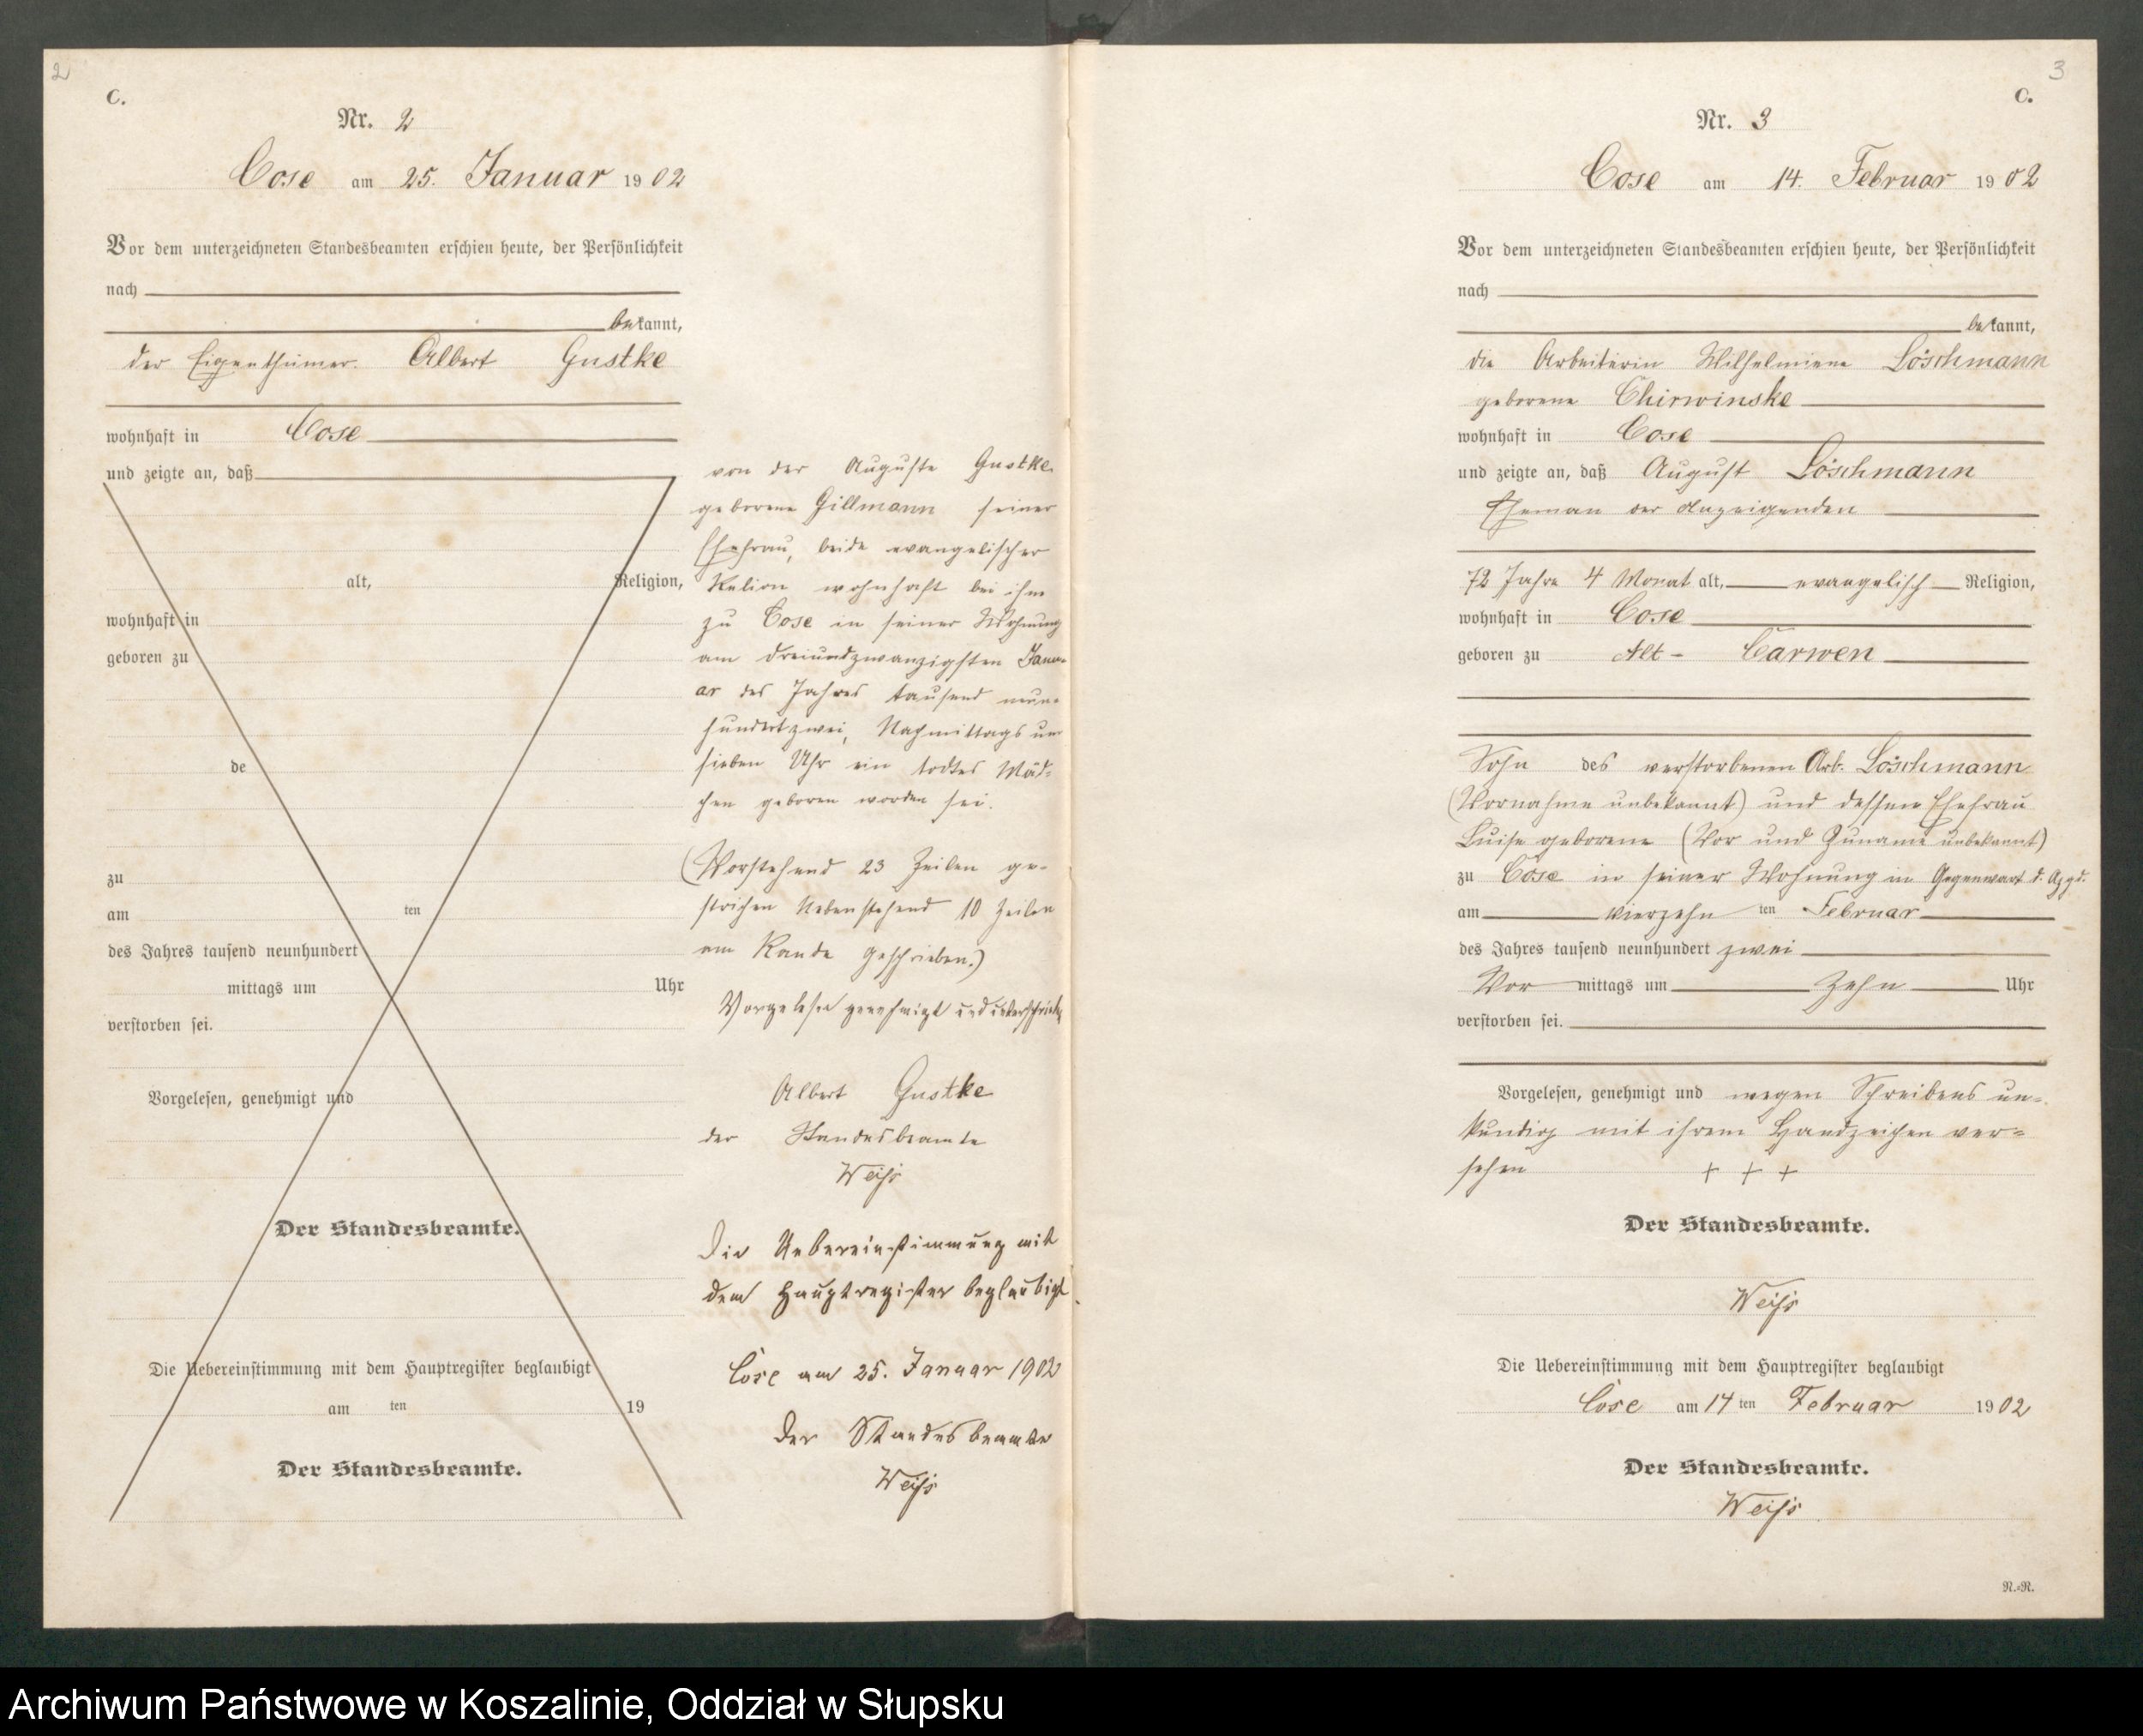 2
C.
Nr. 2
Cose am 25. Januar 1902
Vor dem unterzeichneten Standesbeamten erschien heute, der Persönlichkeit
nach
bekannt,
der Eigenthümer Albert Gustke
wohnhaft in Cose
und zeigte an, daß
alt, Religion,
wohnhaft in
geboren zu
de
zu
am ten
des Jahres tausend neunhundert
mittags um Uhr
verstorben sei.
Vorgelesen, genehmigt und
Der Standesbeamte.
Die Uebereinstimmung mit dem Hauptregister beglaubigt
am ten 19
Der Standesbeamte.
von der Auguste Gustke
geborene Gillmann seiner
Ehefrau, beide evangelischer
Relion wohnhaft bei ihm
zu Cose in seiner Wohnung
am dreiundzwanzigsten Janu-
ar des Jahres tausend neun-
hundertzwei, Nachmittags um
sieben Uhr ein todtes Mäd-
chen geboren worden sei.
(Vorstehend 23 Zeilen ge-
strichen Nebenstehend 10 Zeilen
am Rande geschrieben.)
Vorgelesen genehmigt und unterschrieben
Albert Gustke
der Standesbeamte
Weiß
Die Uebereinstimmung mit
dem Hauptregister beglaubigt
Cose am 25. Januar 1902
Der Standesbeamte
Weiß
3
C.
Nr. 3
Cose am 14. Februar 1902
Vor dem unterzeichneten Standesbeamten erschien heute, der Persönlichkeit
nach
bekannt,
die Arbeiterin Wilhelmiene Löschmann
geborene Chirwinske
wohnhaft in Cose
und zeigte an, daß August Löschmann
Eheman der Anzeigenden
72 Jahre 4 Monat alt, evangelisch Religion,
wohnhaft in Cose
geboren zu Alt-Carwen
Sohn des verstorbenen Arb. Löschmann
(Vornahme unbekannt) und dessen Ehefrau
Luise geborene (Vor und Zuname unbekannt)
zu Cose in seiner Wohnung in Gegenwart d. Azgd.
am vierzehn ten Februar
des Jahres tausend neunhundert zwei
Vor mittags um Zehn Uhr
verstorben sei.
Vorgelesen, genehmigt und wegen Schreibens un-
kundig mit ihrem Handzeichen ver-
sehen + + +
Der Standesbeamte.
Weiß
Die Uebereinstimmung mit dem Hauptregister beglaubigt
Cose am 14 ten Februar 1902
Der Standesbeamte.
Weiß
R.-R.
Archiwum Państwowe w Koszalinie, Oddział w Słupsku